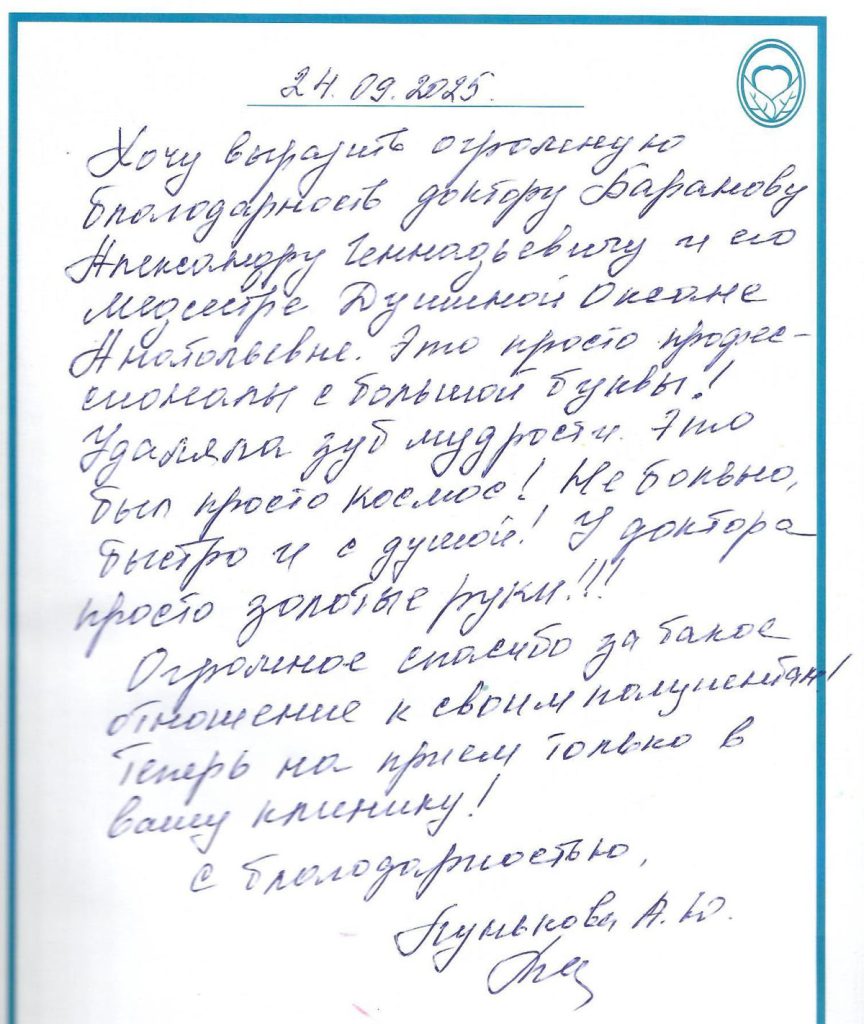 24.09.2025.
Хочу выразить огромную
благодарность доктору Баранову
Александру Геннадьевичу и его
медсестре Душиной Оксане
Анатольевне. Это просто профес-
сионалы с большой буквы!
Удаляла зуб мудрости. Это
был просто космос! Не больно,
быстро и с душой! У доктора
просто золотые руки!!!
Огромное спасибо за такое
отношение к своим
Теперь на прием только в
вашу клинику!
С благодарностью,
А.Ю.